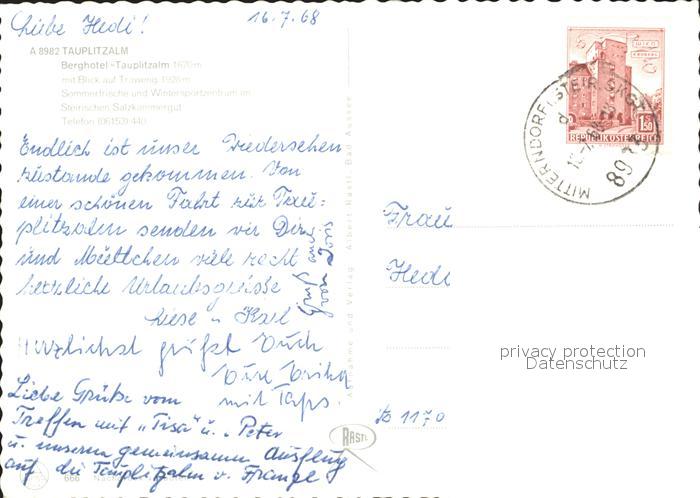 Liebe Hedi!
16.7.68
A 8982 TAUPLITZALM
Berghotel "Tauplitzalm" 1670m
mit Blick auf Traweng 1928m
Sommerfrische und Wintersportzentrum im
Steirischen Salzkammergut
Telefon (06153) 440
Endlich ist unser Wiedersehen
zustande gekommen. Von
einer schönen Fahrt zur Tau=
plitzalm senden wir Dir
und Muttchen viele recht
herzliche Urlaubsgrüsse
Liese u Karl
Gruß auch
von Doris
Herzlichst grüßt Euch
Eure
mit Taps.
Liebe Grüße vom
Treffen mit "Tisa" u. Peter
u. unserem gemeinsamen Ausflug
auf die Tauplitzalm v. Franzl
666
Aufnahme und Verlag Albert Rastl, Bad Aussee
RASTL
WIEN
1.50
REPUBLIK ÖSTERREICH
MITTERNDORF
8983
Frau
Hedi
1170
privacy protection
Datenschutz